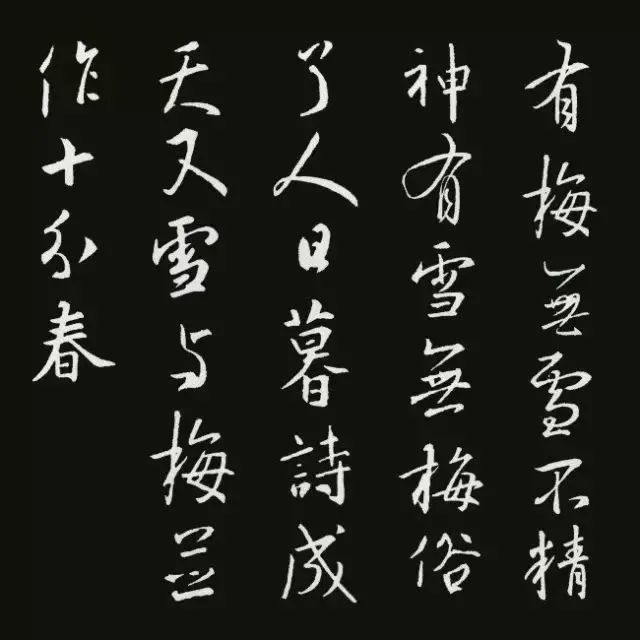 有梅無雪不精
神有雪無梅俗
了人日暮詩成
天又雪与梅並
作十分春